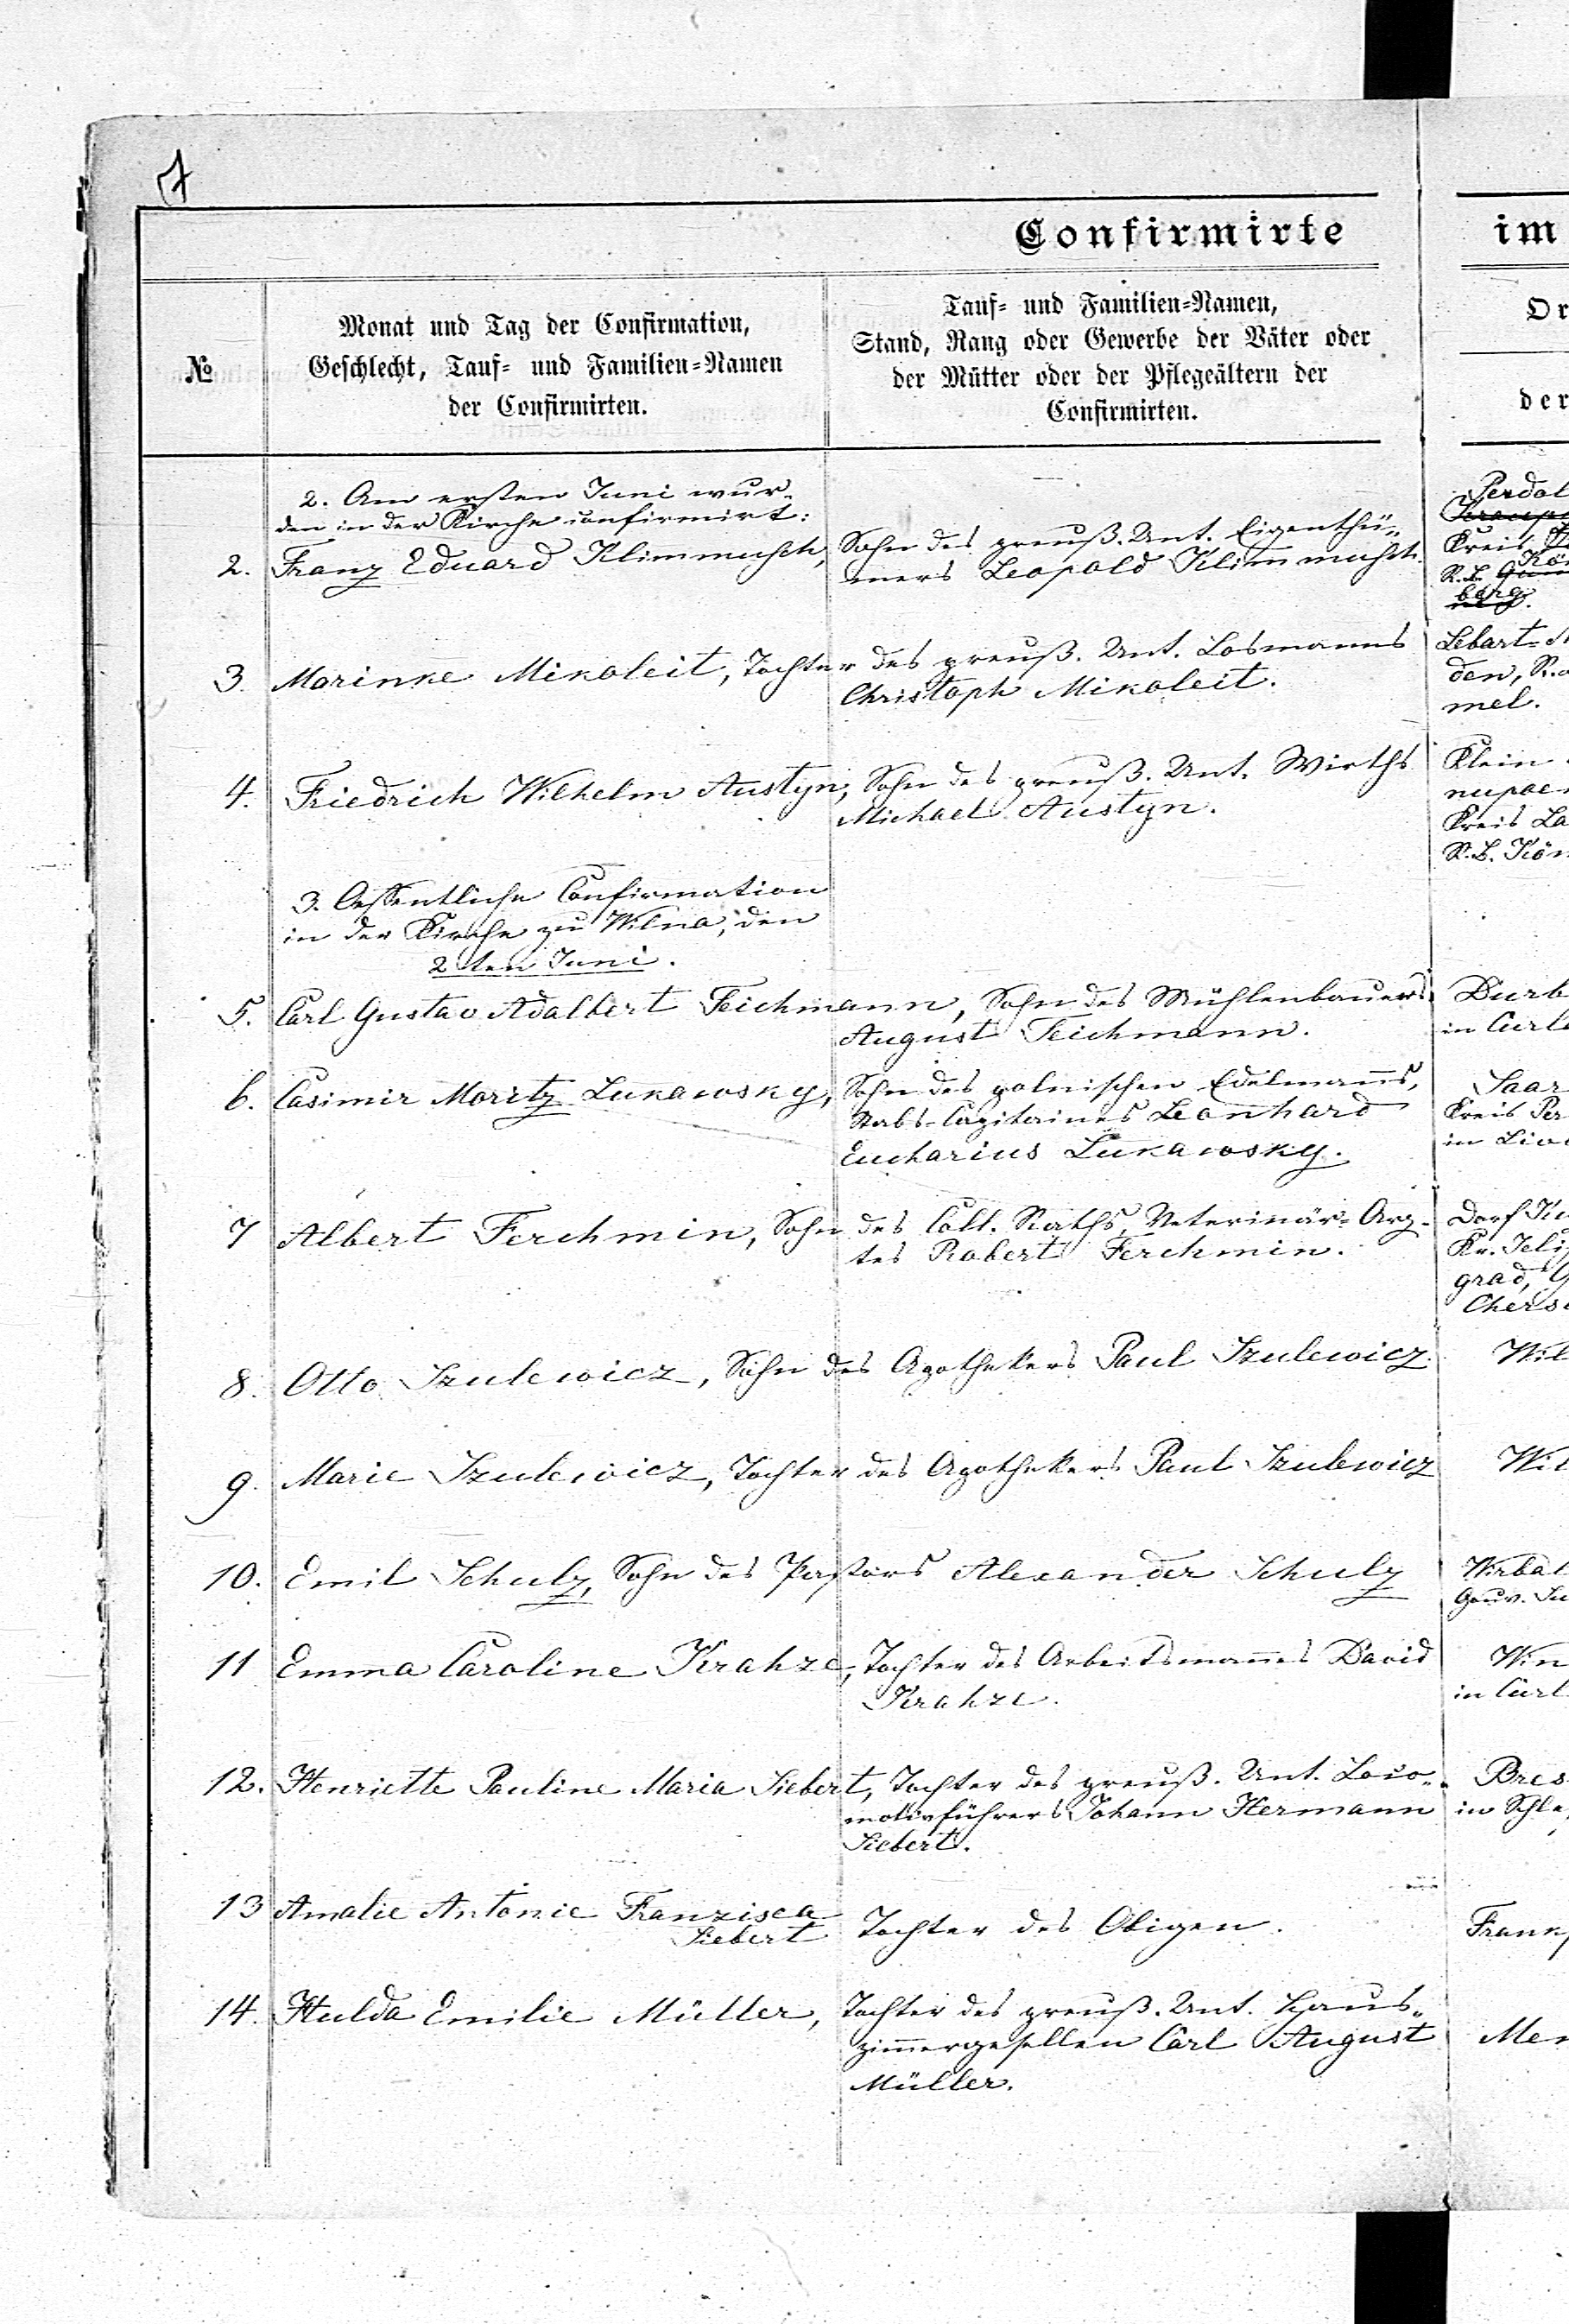 Confirmirte im
№
Monat und Tag der Confirmation,
Geschlecht, Tauf- und Familien-Namen
der Confirmirten.
Tauf- und Familien-Namen,
Stand, Rang oder Gewerbe der Väter oder
der Mütter oder der Pflegeältern der
Confirmirten.
Or
der
2. Am ersten Juni wur-
den in der Kirche confirmirt:
2. Franz Eduard Klimmuhsch, Sohn des preuß. Unt. Eigenthü-
mers Leopold Klimmuhsch.
Perdol
Kreis
R.B. Kön
berg.
3. Marinke Mikoleit, Tochter des preuß. Unt. Losmanns
Christoph Mikoleit.
Lebart-
den, R.
mel.
4. Friedrich Wilhelm Austyn, Sohn des preuß. Unt. Wirths
Michael Austyn.
Klein
nupoe
Kreis La
R.B. Kön
3. Oeffentliche Confirmation
in der Kirche zu Wilna, den
2ten Juni.
5. Carl Gustav Adalbert Teichmann, Sohn des Mühlenbauers
August Teichmann.
Durb
in Curl
6. Casimir Moritz Lukawsky, Sohn des polnischen Edelmanns,
Stabs-Capitaines Leonhard
Eucharius Lukawsky.
Saar
Kreis Per
in Liv
7 Albert Ferchmin, Sohn des Coll. Raths, Veterinär-Arz-
tes Robert Ferchmin.
Dorf Ku
Kr. Jelis
grad, G
Cherso
8. Otto Szulewicz, Sohn des Apothekers Paul Szulewicz.
Wil
9. Marie Szulewicz, Tochter des Apothekers Paul Szulewicz
Wil
10. Emil Schulz, Sohn des Pastors Alexander Schulz
Wirbal
Gouv. Su
11 Emma Caroline Krahze, Tochter des Arbeitsmannes David
Krahze.
Win
in Curl
12. Henriette Pauline Maria Siebert, Tochter des preuß. Unt. Loco-
motivführers Johann Hermann
Siebert.
Bres
in Schle
13 Amalie Antonie Franzisca
Siebert Tochter des Obigen.
Frank
14. Hulda Emilie Müller, Tochter des preuß. Unt. Haus-
zimmergesellen Carl August
Müller.
Mem